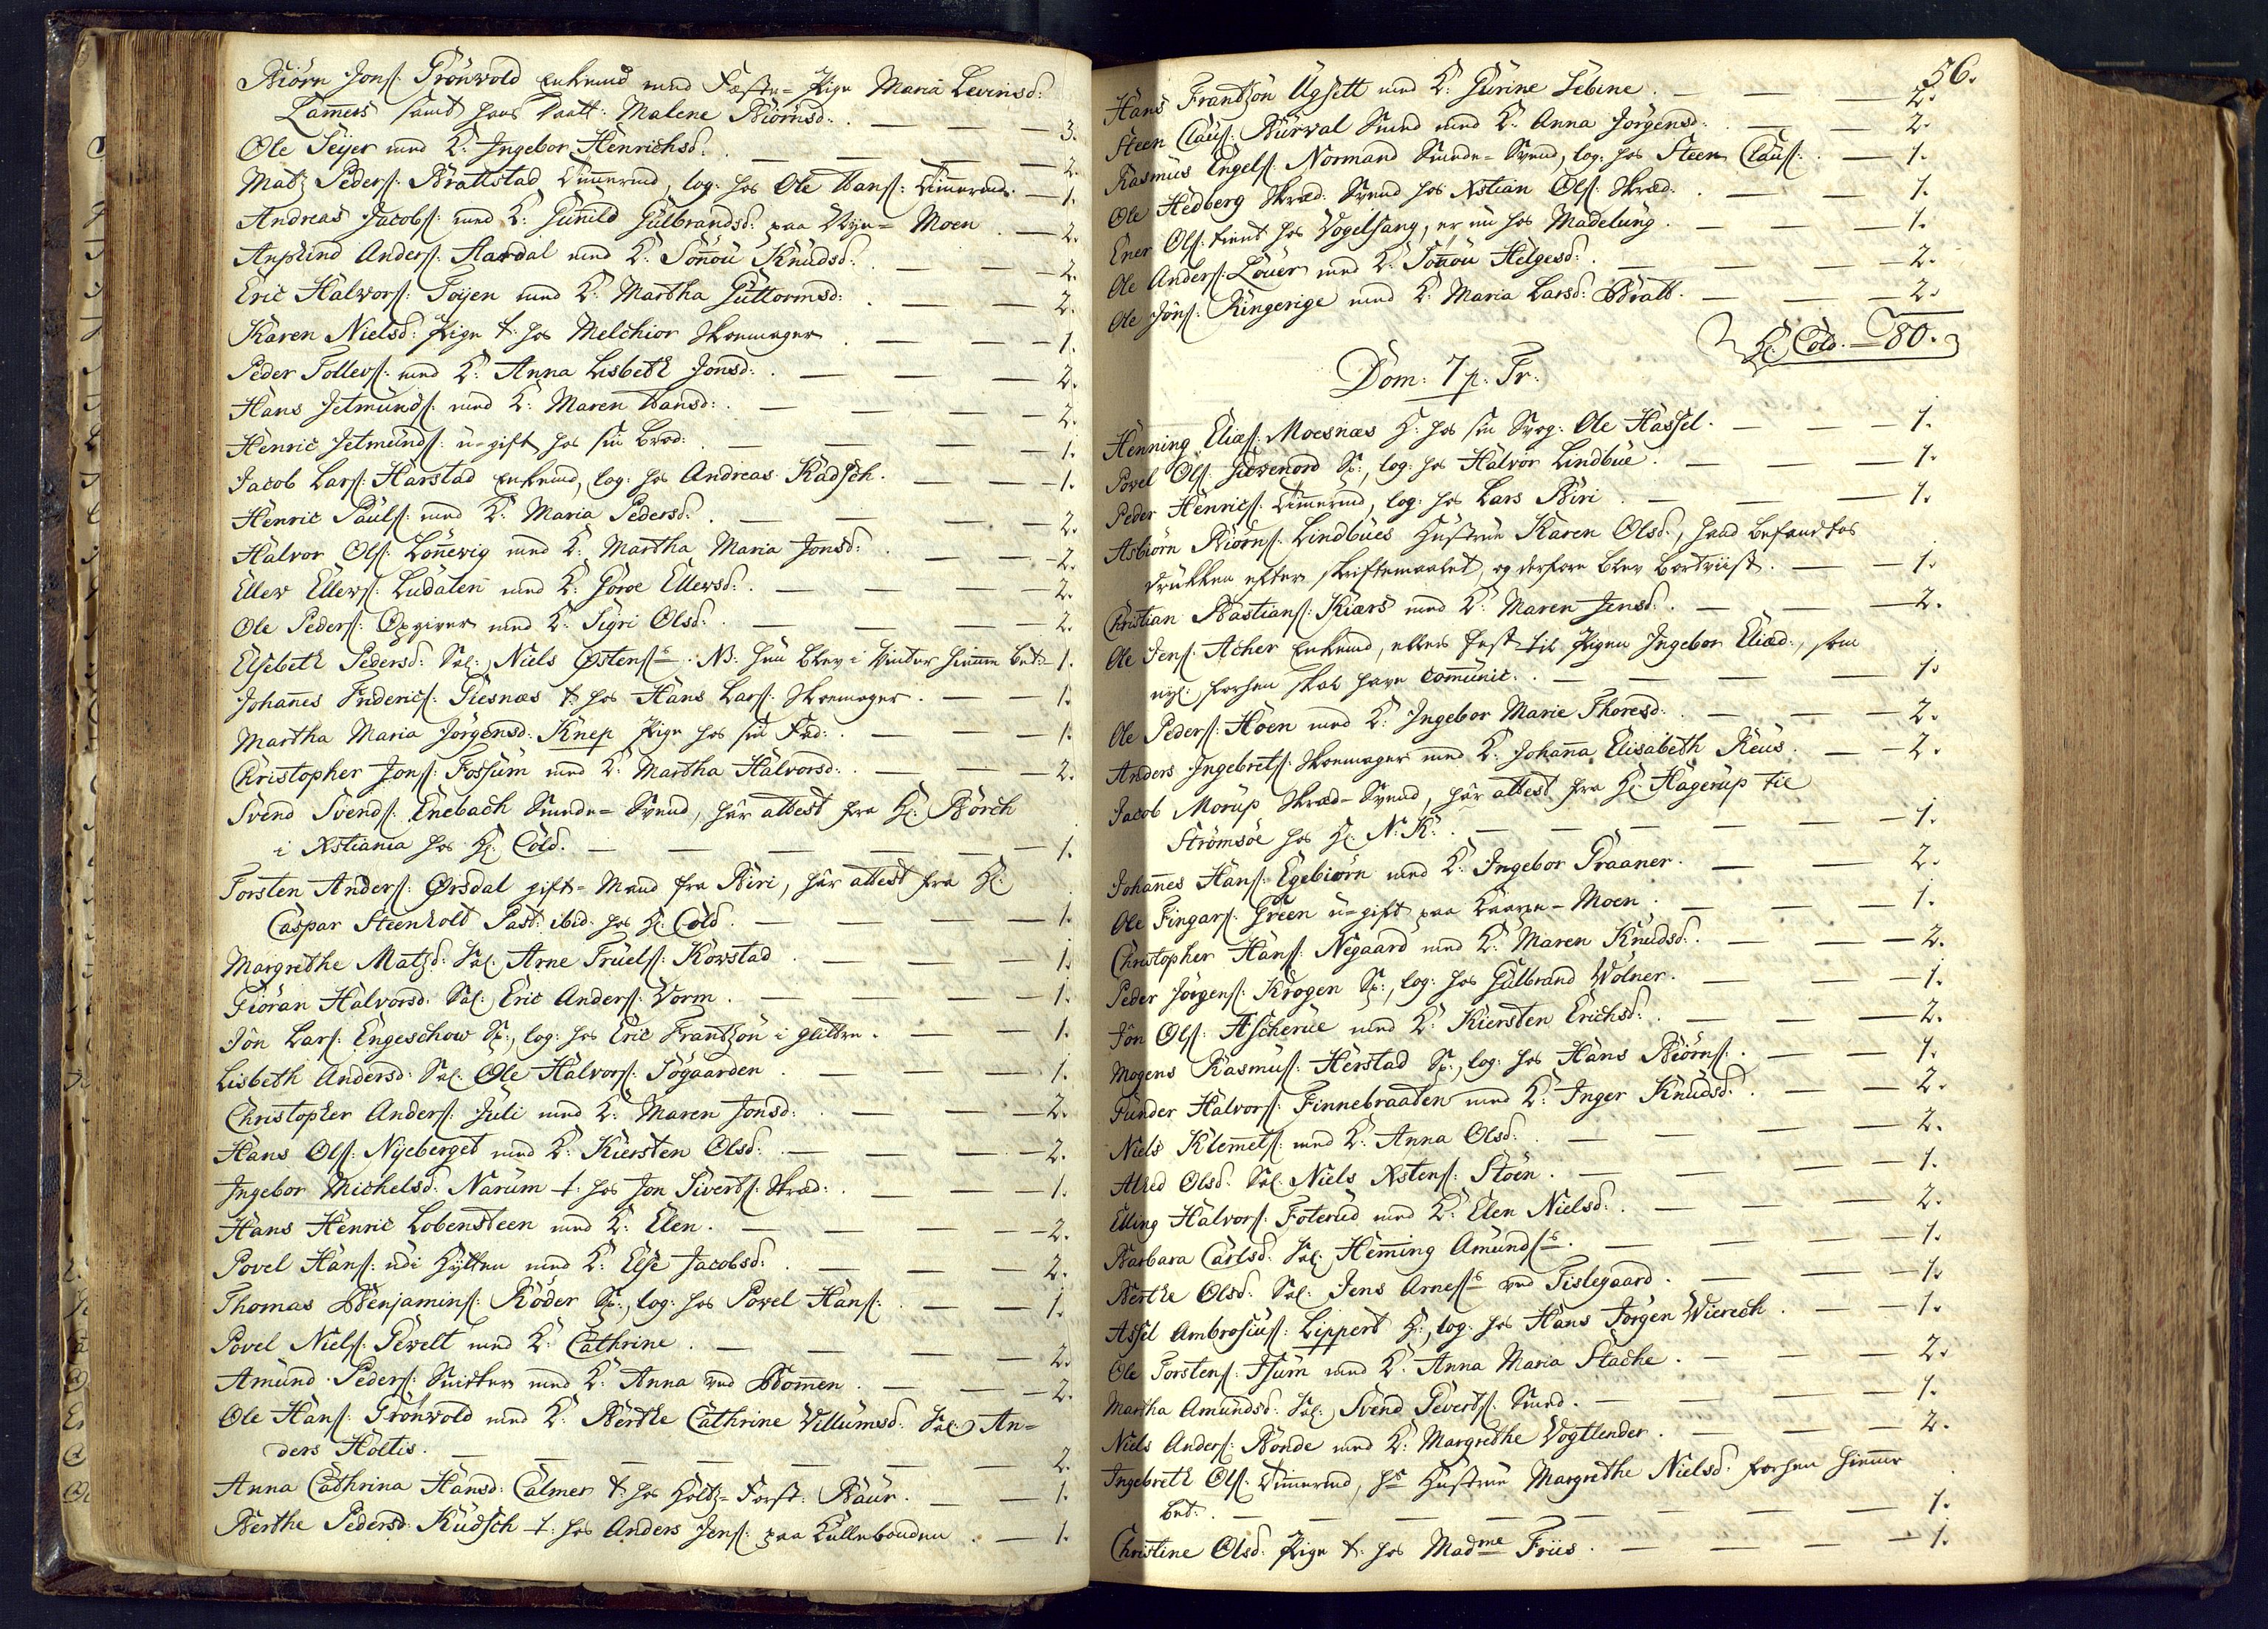 Biörn Jonſ: Grönwold Enkemd med Fæste-Pige Maria Levinsd:
Lamers samt hans Daatt: Malene Biörnsd: . — — 3.
Ole Seyer med K: Ingebor Henrichsd: . — — — 2.
Matz Pederſ: Brattstad Timermd, log: hos Ole Hanſ: Timermd. — 1.
Andreas Jacobſ: med K: Gunild Gulbrandsd: paa Moen . — 2.
Anſlind Anderſ: Aardal med K: Sönou Knudsd: . — — — 2.
Eric Halvorſ: Toÿen med K: Martha Guttormsd: . — — 2.
Karen Nielsd: Pige t: hos Melchior Skoemager . — — 1.
Peder Tollevſ: med K: Anna Lisbeth Jonsd: . — — — 2.
Hans Jetmundſ: med K: Maren Hansd: . — — — 2.
Henric Jetmundſ: u-gift hos sin Brod: . — — — 1.
Jacob Larſ: Harstad Enkemd, log: hos Andreas Kadsch. — — 1.
Henric Paulſ: med K: Maria Pedersd: . — — — 2.
Halvor Olſ: Lönevig med K: Martha Maria Jonsd: . — — 2.
Ellew Ellewſ: Ludalen med K: Göroe Ellewsd: . — — — 2.
Ole Pederſ: Opgiver med K: Sigri Olsd: . — — — 2.
Elsebeth Pedersd: Sal: Niels Östenſs. NB: hun blev i Vinter hieme bet: 1.
Johanes Fridericſ: Giesnæs t: hos Hans Larſ: Skoemager . — — 1.
Martha Maria Jörgensd: Knep Pige hos sin Fad: . — — 1.
Christopher Jonſ: Fossum med K: Martha Halvorsd: . — — 2.
Svend Svendſ: Enebach Smede-Svend, har attest fra Hr: Borch
i Xstiania hos Hr: Cold. — — — — 1.
Torsten Anderſ: Örsdal gift-Mand fra Biri, har attest fra Hr:
Caspar Steenhold Past: ibid: hos Hr: Cold . — — — 1.
Margrethe Matzd: Sal: Arne Truelſ: Kovstad . — — — 1.
Giöran Halvorsd: Sal: Eric Anderſ: Vorm . — — — 1.
Jon Larſ: Engeschow S:, log: hos Eric Frantzön i Glitre . — — 1.
Lisbeth Andersd: Sal: Ole Halvorſ: Sögaarden . — — — 1.
Christopher Anderſ: Juli med K: Maren Jonsd: . — — — 2.
Hans Olſ: Nyeberget med K: Kiersten Olsd: . — — — 2.
Ingebor Michelsd: Narum t: hos Jon Sivertſ: Skræd: . — — 1.
Hans Henric Lobensteen med K: Elen . — — — 2.
Povel Hanſ: udi Hytten med K: Else Jacobsd: . — — — 2.
Thomas Benjaminſ: Röder S:, log: hos Povel Hanſ: . — — 1.
Povel Nielſ: Gevelt med K: Cathrine . — — — 2.
Amund Pederſ: Snidker med K: Anna ved Bomen . — — 2.
Ole Hanſ: Grönwold med K: Berthe Cathrine Villumsd: Sal: An-
ders Holtis. — — — — — 2.
Anna Cathrina Hansd: Calmer t: hos Holtz-Forst: Baur. — — 1.
Berthe Pedersd: Kudsch t: hos Anders Jenſ: paa Kullebonden . — 1.
56.
Hans Frantzön Ugsett med K: Gurine Sebine . — — 2.
Steen Clauſ: Burval Smed med K: Anna Jörgensd: . — — 2.
Rasmus Engelſ: Normand Smede-Svend, log: hos Steen Clauſ: . — 1.
Ole Hedberg Skræd: Svend hos Xstian Olſ: Skræd: . — — 1.
Ener Olſ: tient hos Vogelsang, er nu hos Madelung . — — 1.
Ole Anderſ: Löuer med K: Sönou Helgesd: . — — — 2.
Ole Jonſ: Ringerige med K: Maria Larsd: Bratt. — — — 2.
Hr: Cold. — 80.
Dom: 7 p: Tr:
Henning Eliæſ: Moesnæs H: hos sin Svog: Ole Hassel. — — 1.
Povel Olſ: S:, log: hos Halvor Lindbue . — — — 1.
Peder Henricſ: Timermd, log: hos Lars Biri . — — — 1.
Asbiörn Biörnſ: Lindbues Hustrue Karen Olsd:, hand befandtes
drukken efter skriftemaalet, og derfore blev bortviist. — — 1.
Christian Bastianſ: Kiærs med K: Maren Jensd: . — — — 2.
Ole Jenſ: Acher Enkemd, ellers fest til Pigen Ingebor Eliæd:, som
nyl: forhen skal have comunic: . — — — — 1.
Ole Pederſ: Hoen med K: Ingebor Marie Thoresd: . — — 2.
Anders Ingebretſ: Skoemager med K: Johana Elisabeth Reus . — 2.
Jacob Morup Skræd-Svend, har attest fra Hr: Hagerup til
Strömsöe hos Hr: N: K: . — — — — — 1.
Johanes Hanſ: Egebiörn med K: Ingebor Praaner . — — 2.
Ole Fingarſ: Green u-gift paa Moen . — — — 1.
Christopher Hanſ: Negaard med K: Maren Knudsd: . — — 2.
Peder Jörgenſ: Krogen S:, log: hos Gulbrand Wölner . — — 1.
Jon Olſ: Ascherue med K: Kiersten Erichsd: . — — — 2.
Mogens Rasmuſ: Herstad S:, log: hos Hans Biörnſ: . — — 1.
Gunder Halvorſ: Finnebraaten med K: Inger Knudsd: . — 2.
Niels Klemetſ: med K: Anna Olsd: . — — — 2.
Alhed Olsd: Sal: Niels Xstenſ: Stoen . — — — 1.
Elling Halvorſ: Foterud med K: Elen Nielsd: . — — 2.
Barbara Carlsd: Sal: Heming Amundſs . — — — 1.
Berthe Olsd: Sal: Jens Arneſs ved Tislegaard . — — — 1.
Assel Ambrosiuſ: Lippert H:, log: hos Hans Jörgen Wierech . — 1.
Ole Torstenſ: Fsum med K: Anna Maria Stache . — — 2.
Martha Amundsd: Sal: Svend Severtſ: Smed . — — — 1.
Niels Anderſ: Bonde med K: Margrethe Vogtlender . — — 2.
Ingebreth Olſ: Timermd, hs Hustrue Margrethe Nielsd: forhen hieme
bet: . — — — — — — 1.
Christine Olsd: Pige t: hos Madme Friis . — — — 1.